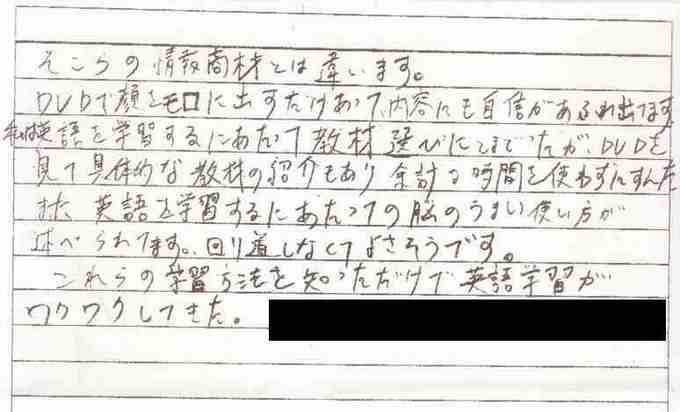 そこらの情報商材とは違います。
DVDで顔をモロに出すだけあって、内容にも自信があふれ出てます
私は英語を学習するにあたって教材選びにとまどったが、DVDを
見て具体的な教材の紹介もあり余計な時間を使わずにすんだ
また英語を学習するにあたっての脳のうまい使い方が
述べられてます。回り道しなくてよさそうです。
これらの学習方法を知っただけで英語学習が
ワクワクしてきた。